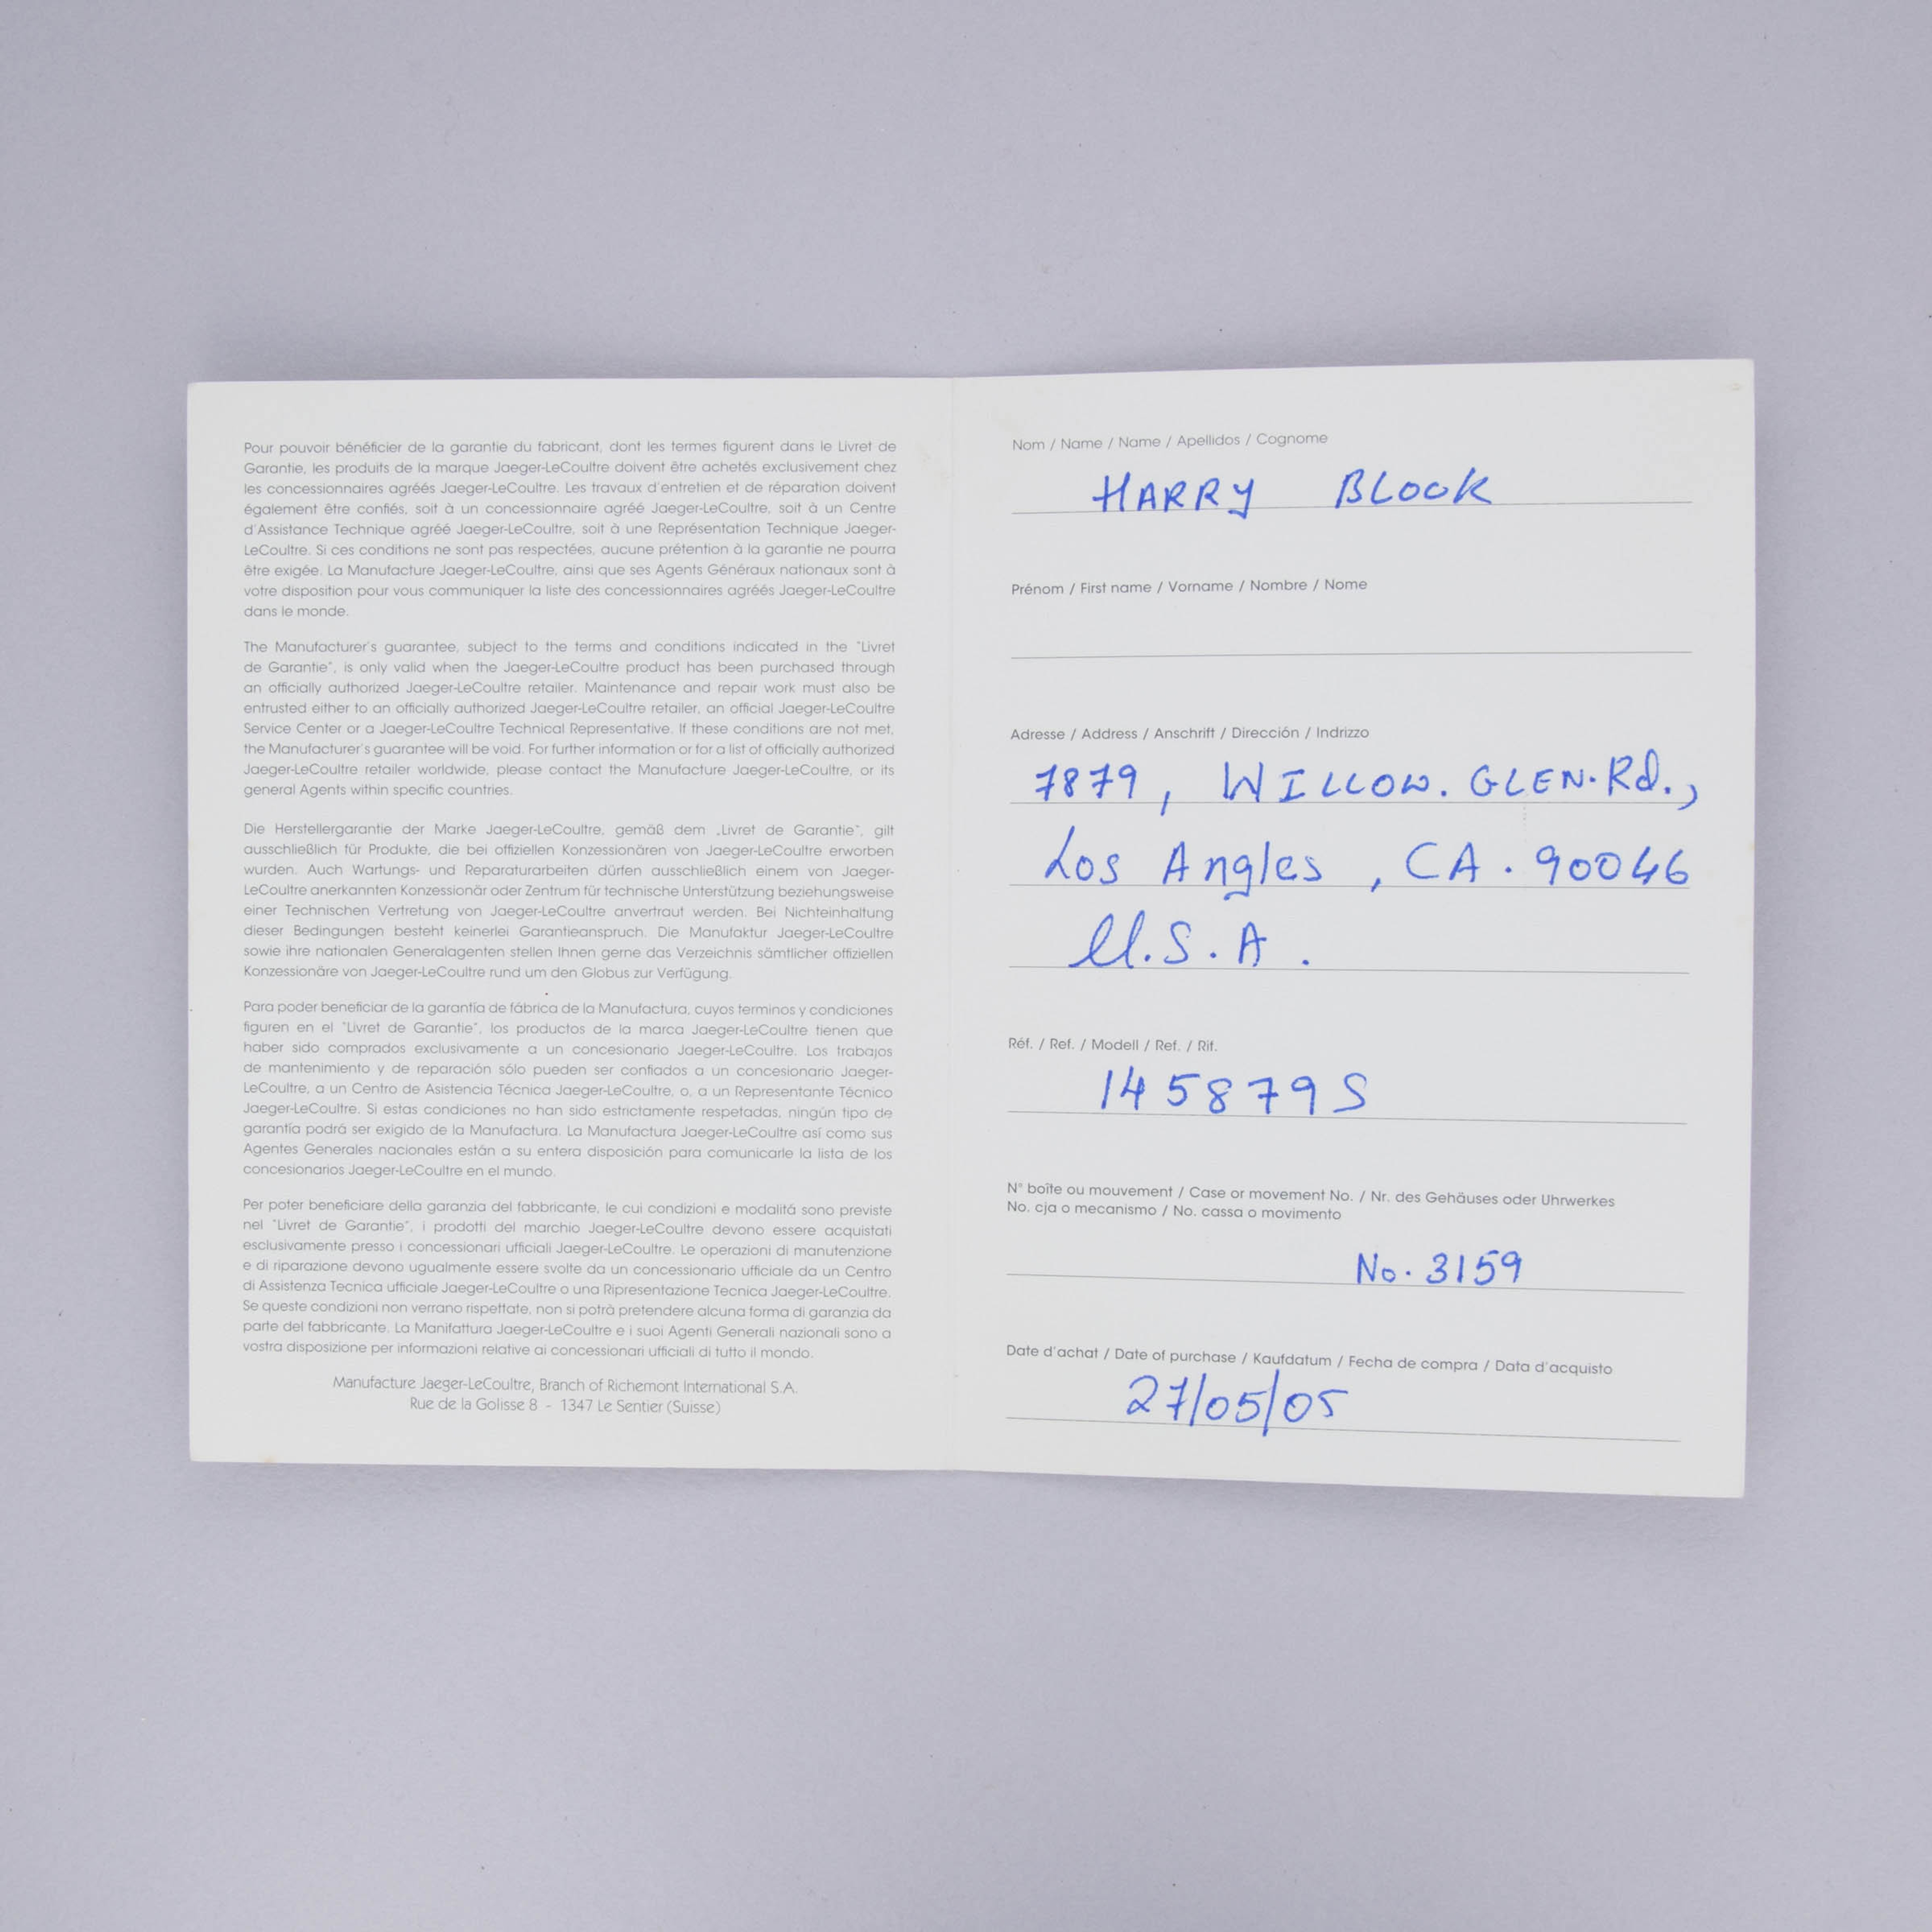 Pour pouvoir bénéficier de la garantie du fabricant, dont les termes figurent dans le Livret de
Garantie, les produits de la marque Jaeger-LeCoultre doivent être achetés exclusivement chez
les concessionnaires agréés Jaeger-LeCoultre. Les travaux d'entretien et de réparation doivent
également être confiés, soit à un concessionnaire agréé Jaeger-LeCoultre, soit à un Centre
d'Assistance Technique agréé Jaeger-LeCoultre, soit à une Représentation Technique Jaeger-
LeCoultre. Si ces conditions ne sont pas respectées, aucune prétention à la garantie ne pourra
être exigée. La Manufacture Jaeger-LeCoultre, ainsi que ses Agents Généraux nationaux sont à
votre disposition pour vous communiquer la liste des concessionnaires agréés Jaeger-LeCoultre
dans le monde.
The Manufacturer's guarantee, subject to the terms and conditions indicated in the "Livret
de Garantie", is only valid when the Jaeger-LeCoultre product has been purchased through
an officially authorized Jaeger-LeCoultre retailer. Maintenance and repair work must also be
entrusted either to an officially authorized Jaeger-LeCoultre retailer, an official Jaeger-LeCoultre
Service Center or a Jaeger-LeCoultre Technical Representative. If these conditions are not met,
the Manufacturer's guarantee will be void. For further information or for a list of officially authorized
Jaeger-LeCoultre retailer worldwide, please contact the Manufacture Jaeger-LeCoultre, or its
general Agents within specific countries.
Die Herstellergarantie der Marke Jaeger-LeCoultre, gemäß dem „Livret de Garantie", gilt
ausschließlich für Produkte, die bei offiziellen Konzessionären von Jaeger-LeCoultre erworben
wurden. Auch Wartungs- und Reparaturarbeiten dürfen ausschließlich einem von Jaeger-
LeCoultre anerkannten Konzessionär oder Zentrum für technische Unterstützung beziehungsweise
einer Technischen Vertretung von Jaeger-LeCoultre anvertraut werden. Bei Nichteinhaltung
dieser Bedingungen besteht keinerlei Garantieanspruch. Die Manufaktur Jaeger-LeCoultre
sowie ihre nationalen Generalagenten stellen Ihnen gerne das Verzeichnis sämtlicher offiziellen
Konzessionäre von Jaeger-LeCoultre rund um den Globus zur Verfügung.
Para poder beneficiar de la garantía de fábrica de la Manufactura, cuyos terminos y condiciones
figuren en el "Livret de Garantie", los productos de la marca Jaeger-LeCoultre tienen que
haber sido comprados exclusivamente a un concesionario Jaeger-LeCoultre. Los trabajos
de mantenimiento y de reparación sólo pueden ser confiados a un concesionario Jaeger-
LeCoultre, a un Centro de Asistencia Técnica Jaeger-LeCoultre, o, a un Representante Técnico
Jaeger-LeCoultre. Si estas condiciones no han sido estrictamente respetadas, ningún tipo de
garantía podrá ser exigido de la Manufactura. La Manufactura Jaeger-LeCoultre así como sus
Agentes Generales nacionales están a su entera disposición para comunicarle la lista de los
concesionarios Jaeger-LeCoultre en el mundo.
Per poter beneficiare della garanzia del fabbricante, le cui condizioni e modalitá sono previste
nel "Livret de Garantie", i prodotti del marchio Jaeger-LeCoultre devono essere acquistati
esclusivamente presso i concessionari ufficiali Jaeger-LeCoultre. Le operazioni di manutenzione
e di riparazione devono ugualmente essere svolte da un concessionario ufficiale da un Centro
di Assistenza Tecnica ufficiale Jaeger-LeCoultre o una Ripresentazione Tecnica Jaeger-LeCoultre.
Se queste condizioni non verrano rispettate, non si potrà pretendere alcuna forma di garanzia da
parte del fabbricante. La Manifattura Jaeger-LeCoultre e i suoi Agenti Generali nazionali sono a
vostra disposizione per informazioni relative ai concessionari ufficiali di tutto il mondo.
Manufacture Jaeger-LeCoultre, Branch of Richemont International S.A.
Rue de la Golisse 8 - 1347 Le Sentier (Suisse)
Nom / Name / Name / Apellidos / Cognome
HARRY BLOOK
Prénom / First name / Vorname / Nombre / Nome
Adresse / Address / Anschrift / Dirección / Indrizzo
7879, WILLOW. GLEN. Rd.,
Los Angles, CA. 90046
U.S.A.
Réf. / Ref. / Modell / Ref. / Rif.
145879S
N° boîte ou mouvement / Case or movement No. / Nr. des Gehäuses oder Uhrwerkes
No. cja o mecanismo / No. cassa o movimento
No. 3159
Date d'achat / Date of purchase / Kaufdatum / Fecha de compra / Data d'acquisto
27/05/05